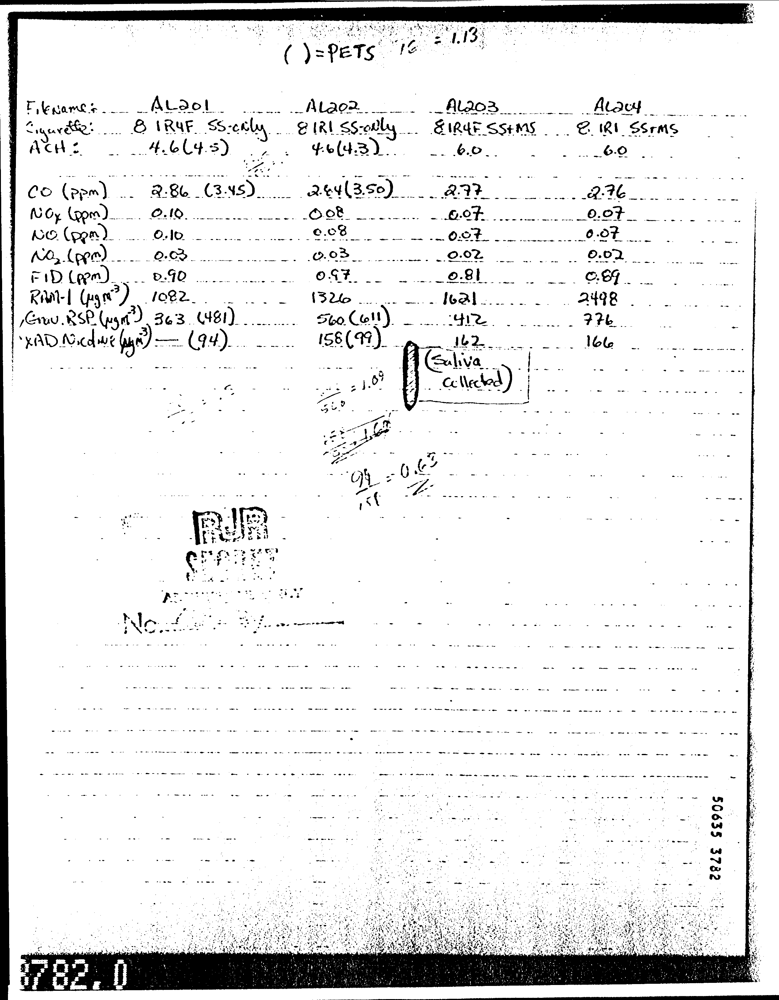 ( ) = PETS = 1.13
Filename: AL201 AL202 AL203 AL204
Cigarette: 8 1R4F SS-only 8 1R1 SS-only 8 1R4F SS+MS 8 1R1 SS+MS
ACH: 4.6 (4.5) 4.6 (4.3) 6.0 6.0
CO (ppm) 2.86 (3.45) 2.44 (3.50) 2.77 2.76
NOx (ppm) 0.10 0.08 0.07 0.07
NO (ppm) 0.10 0.08 0.07 0.07
NO2 (ppm) 0.03 0.03 0.02 0.02
FID (ppm) 0.90 0.97 0.81 0.89
RAM-1 (μg m-3) 1082 1326 1621 2498
Grav. RSP (μg m-3) 363 (481) 560 (611) 412 776
XAD Nicotine (μg m-3) — (94) 158 (99) 162 166
(Saliva
collected)
560 = 1.09
= 1.62
99 = 0.63
158
RJR
SECRET
No.
50635 3782
3782.0